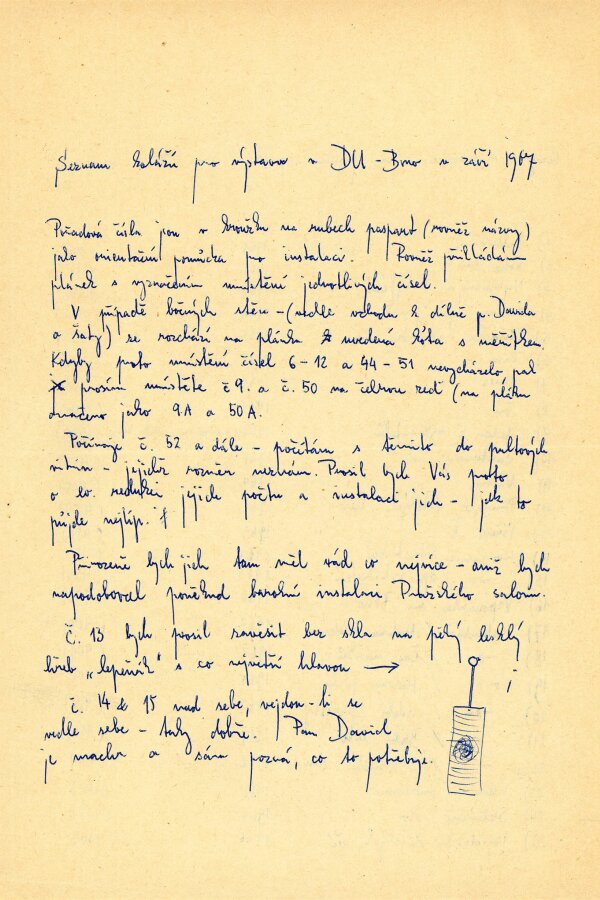 Seznam koláží pro výstavu v DU - Brno v září 1967
Pořadová čísla jsou v kroužku na rubech paspart (rovněž názvy)
jako orientační pomůcka pro instalaci. Rovněž přikládám
plánek s vyznačením umístění jednotlivých čísel.
V případě bočných stěn - (vedle vchodu k dílně p. Davida
a šatny) se rozchází na plánku uvedená kóta s měřítkem.
Kdyby proto umístění čísel 6-12 a 44-51 nevycházelo, pak
prosím umístěte č 9. a č. 50 na čelnou zeď (na plánku
označeno jako 9A a 50A.
Počínaje č. 52 a dále - počítám s těmito do pultových
vitrin - jejichž rozměr neznám. Prosil bych Vás proto
o ev. redukci jejich počtu a instalaci jich - jak to
půjde nejlíp.
Přirozeně bych jich tam měl rád co nejvíce - aniž bych
napodoboval poněkud barokní instalaci Pražského salonu.
Č. 13 bych prosil zavěsit bez skla na pěkný lesklý
hřeb „lepeňák" s co největší hlavou →
č. 14 & 15 nad sebe, vejdou-li se
vedle sebe - taky dobře. Pan David
je machr a sám pozná, co to potřebuje.